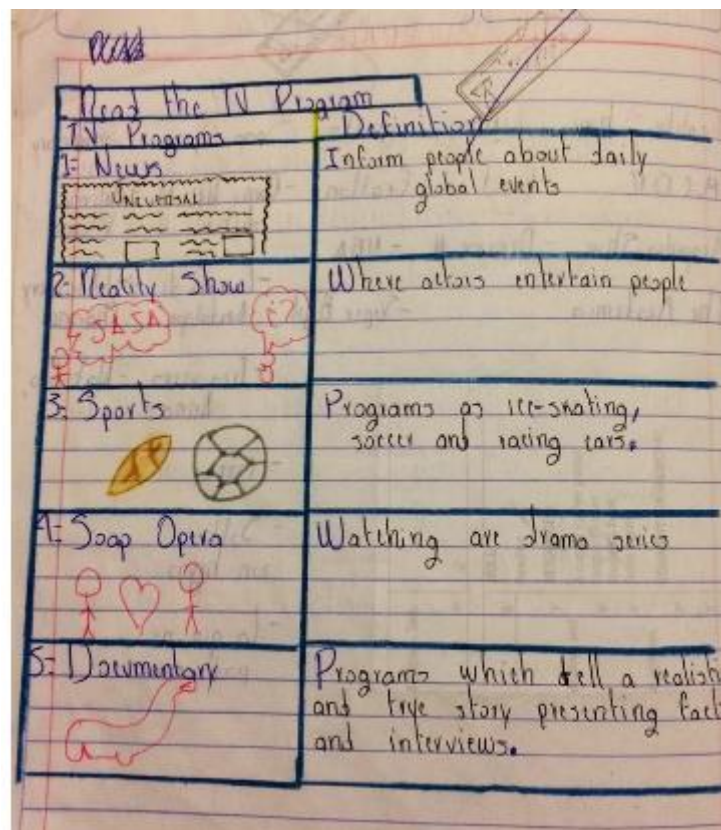 Read the TV Program
TV. Programs
Definition
1= News
UNIVERSAL
Inform people about daily
global events
2= Reality Show
JAJA
Where actors entertain people
3= Sports
Programs as ice-skating,
soccer and racing cars.
4= Soap Opera
Watching are drama series
5= Documentary
Programs which tell a realist
and trye story presenting fact
and interviews.